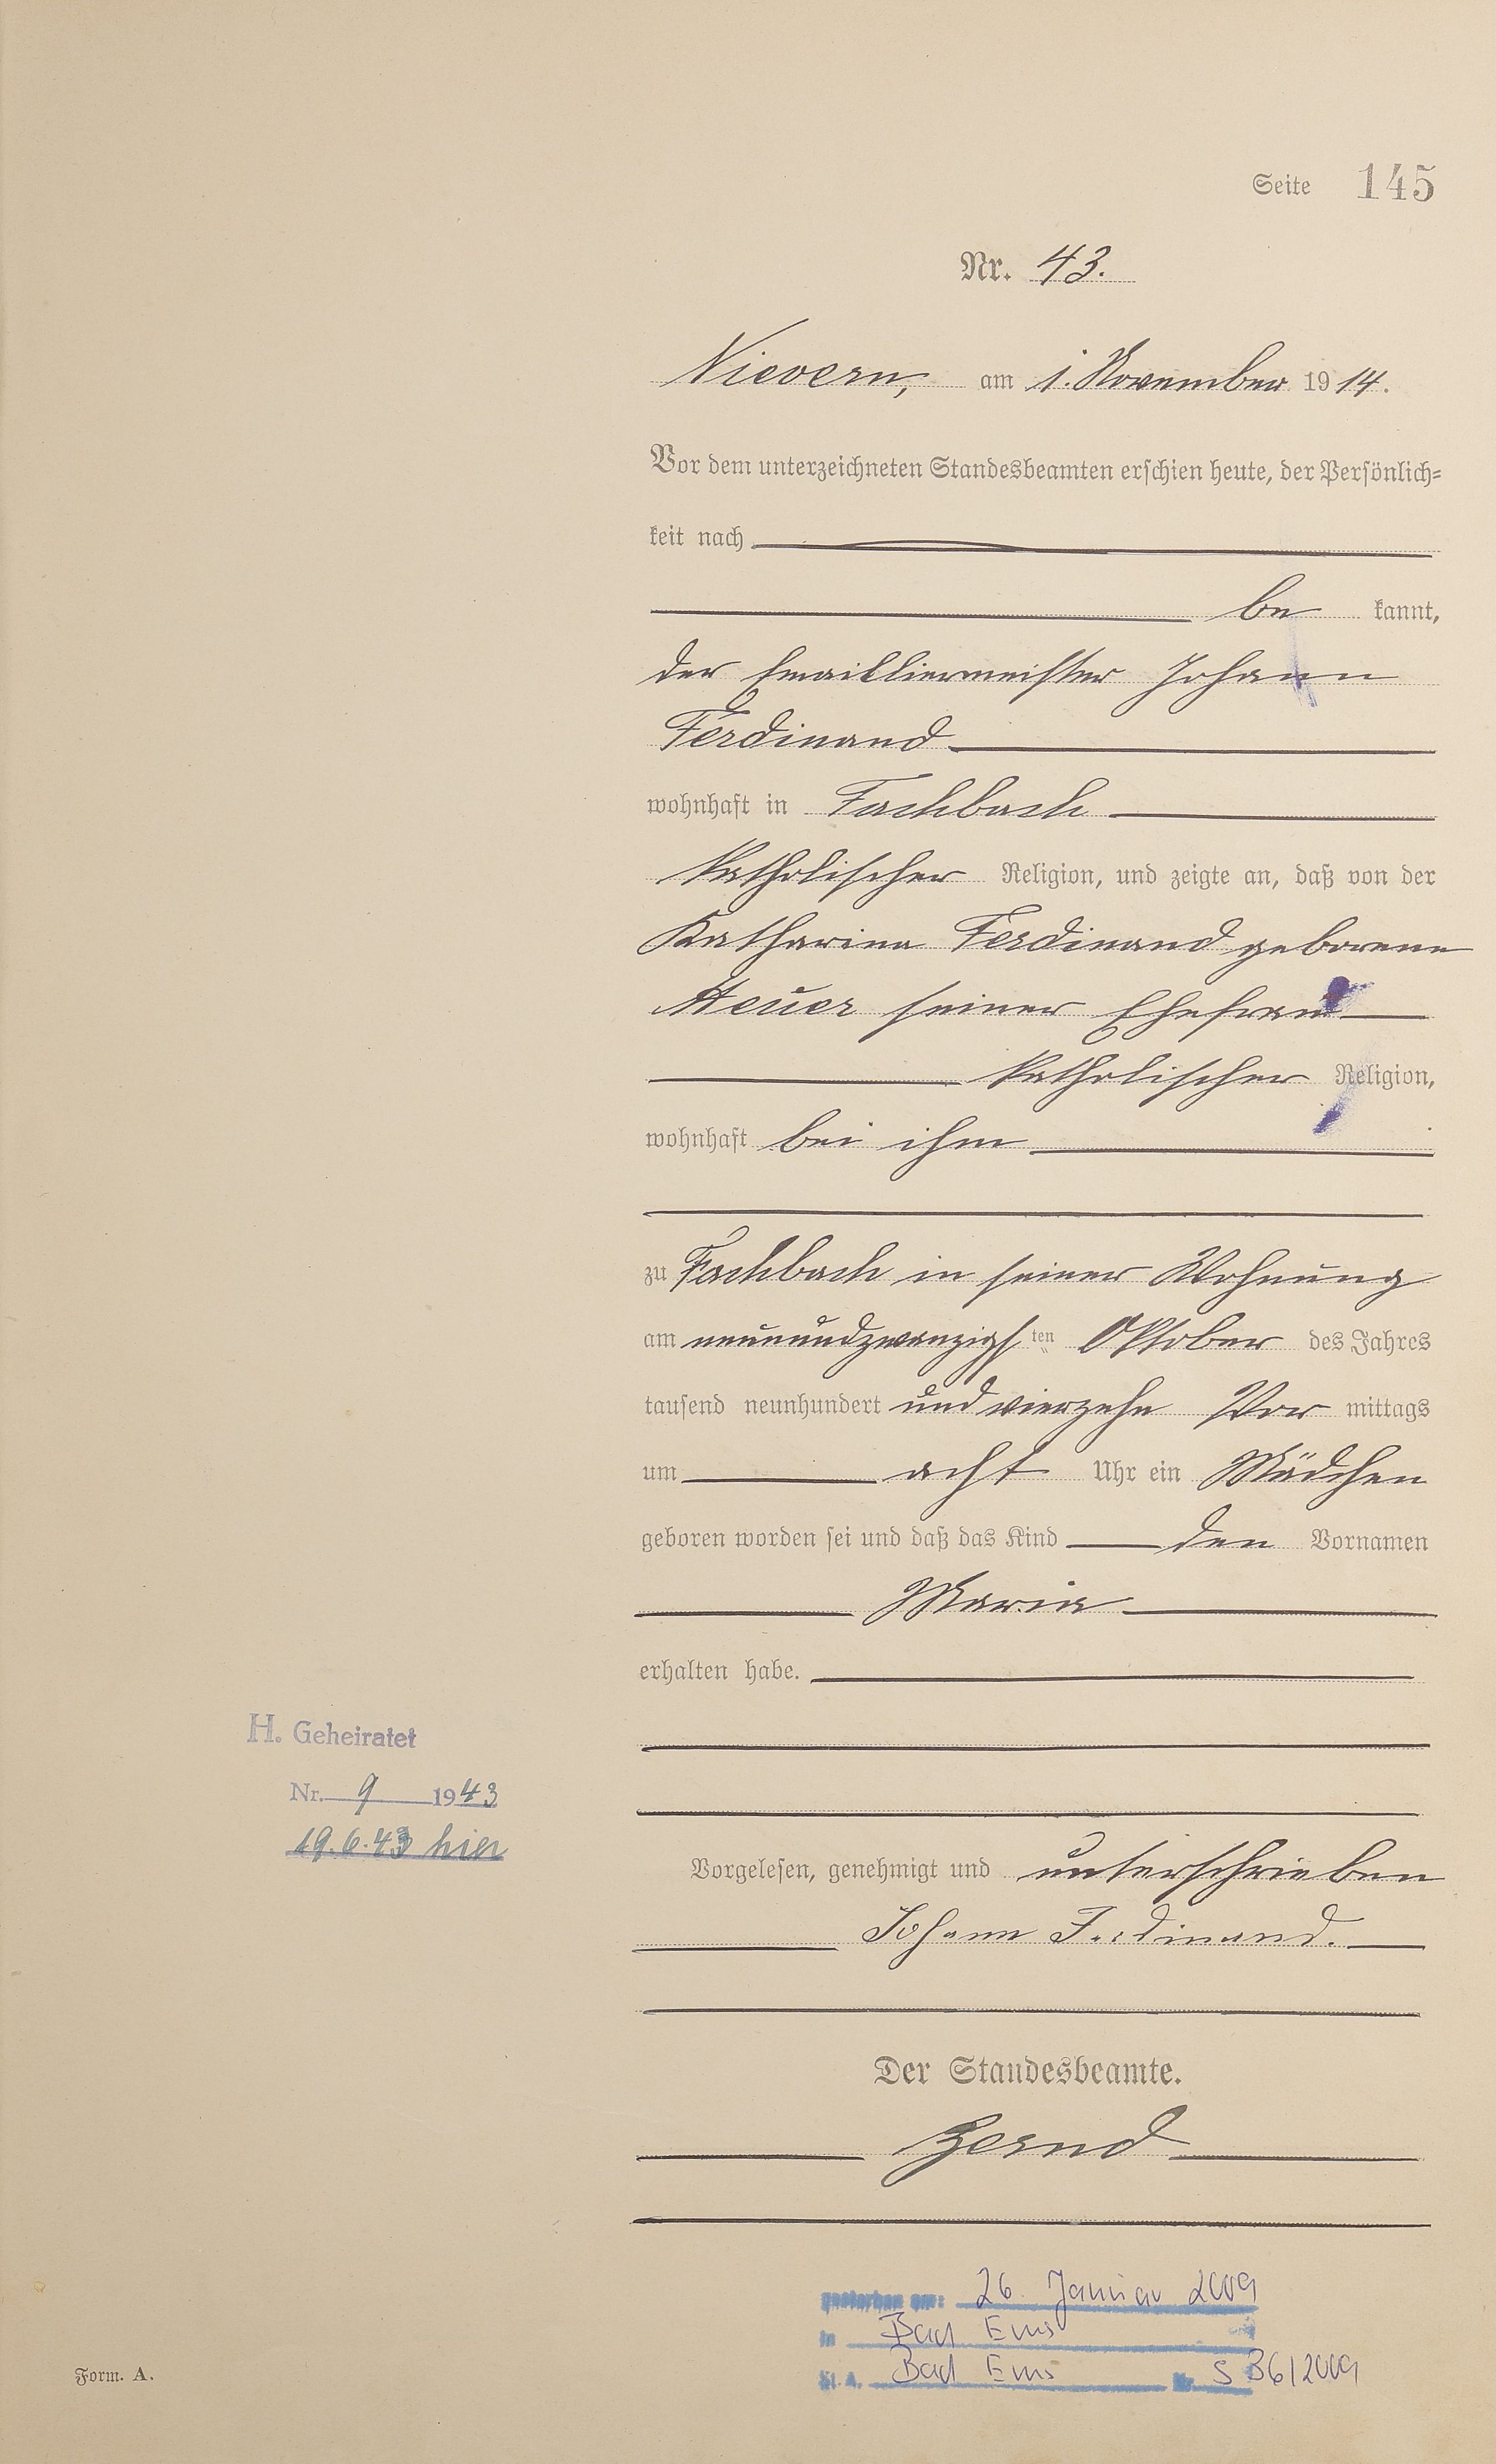 Seite 145
Nr. 43.
Nievern, am 1. November 1914.
Vor dem unterzeichneten Standesbeamten erschien heute, der Persönlich-
keit nach
be kannt,
der Emailliermeister Johann
Ferdinand
wohnhaft in Fachbach
katholischer Religion, und zeigte an, daß von der
Katharina Ferdinand geborene
Heuer seiner Ehefrau
katholischer Religion,
wohnhaft bei ihm
zu Fachbach in seiner Wohnung
am neunundzwanzigsten Oktober des Jahres
tausend neunhundert und vierzehn Vor mittags
um acht Uhr ein Mädchen
geboren worden sei und daß das Kind den Vornamen
Maria
erhalten habe.
H. Geheiratet
Nr. 9 1943
19.6.43 hier
Vorgelesen, genehmigt und unterschrieben
Johann Ferdinand.
Der Standesbeamte.
gestorben am: 26. Januar 2009
in Bad Ems
St. A. Bad Ems Nr. S 36/2009
Form. A.